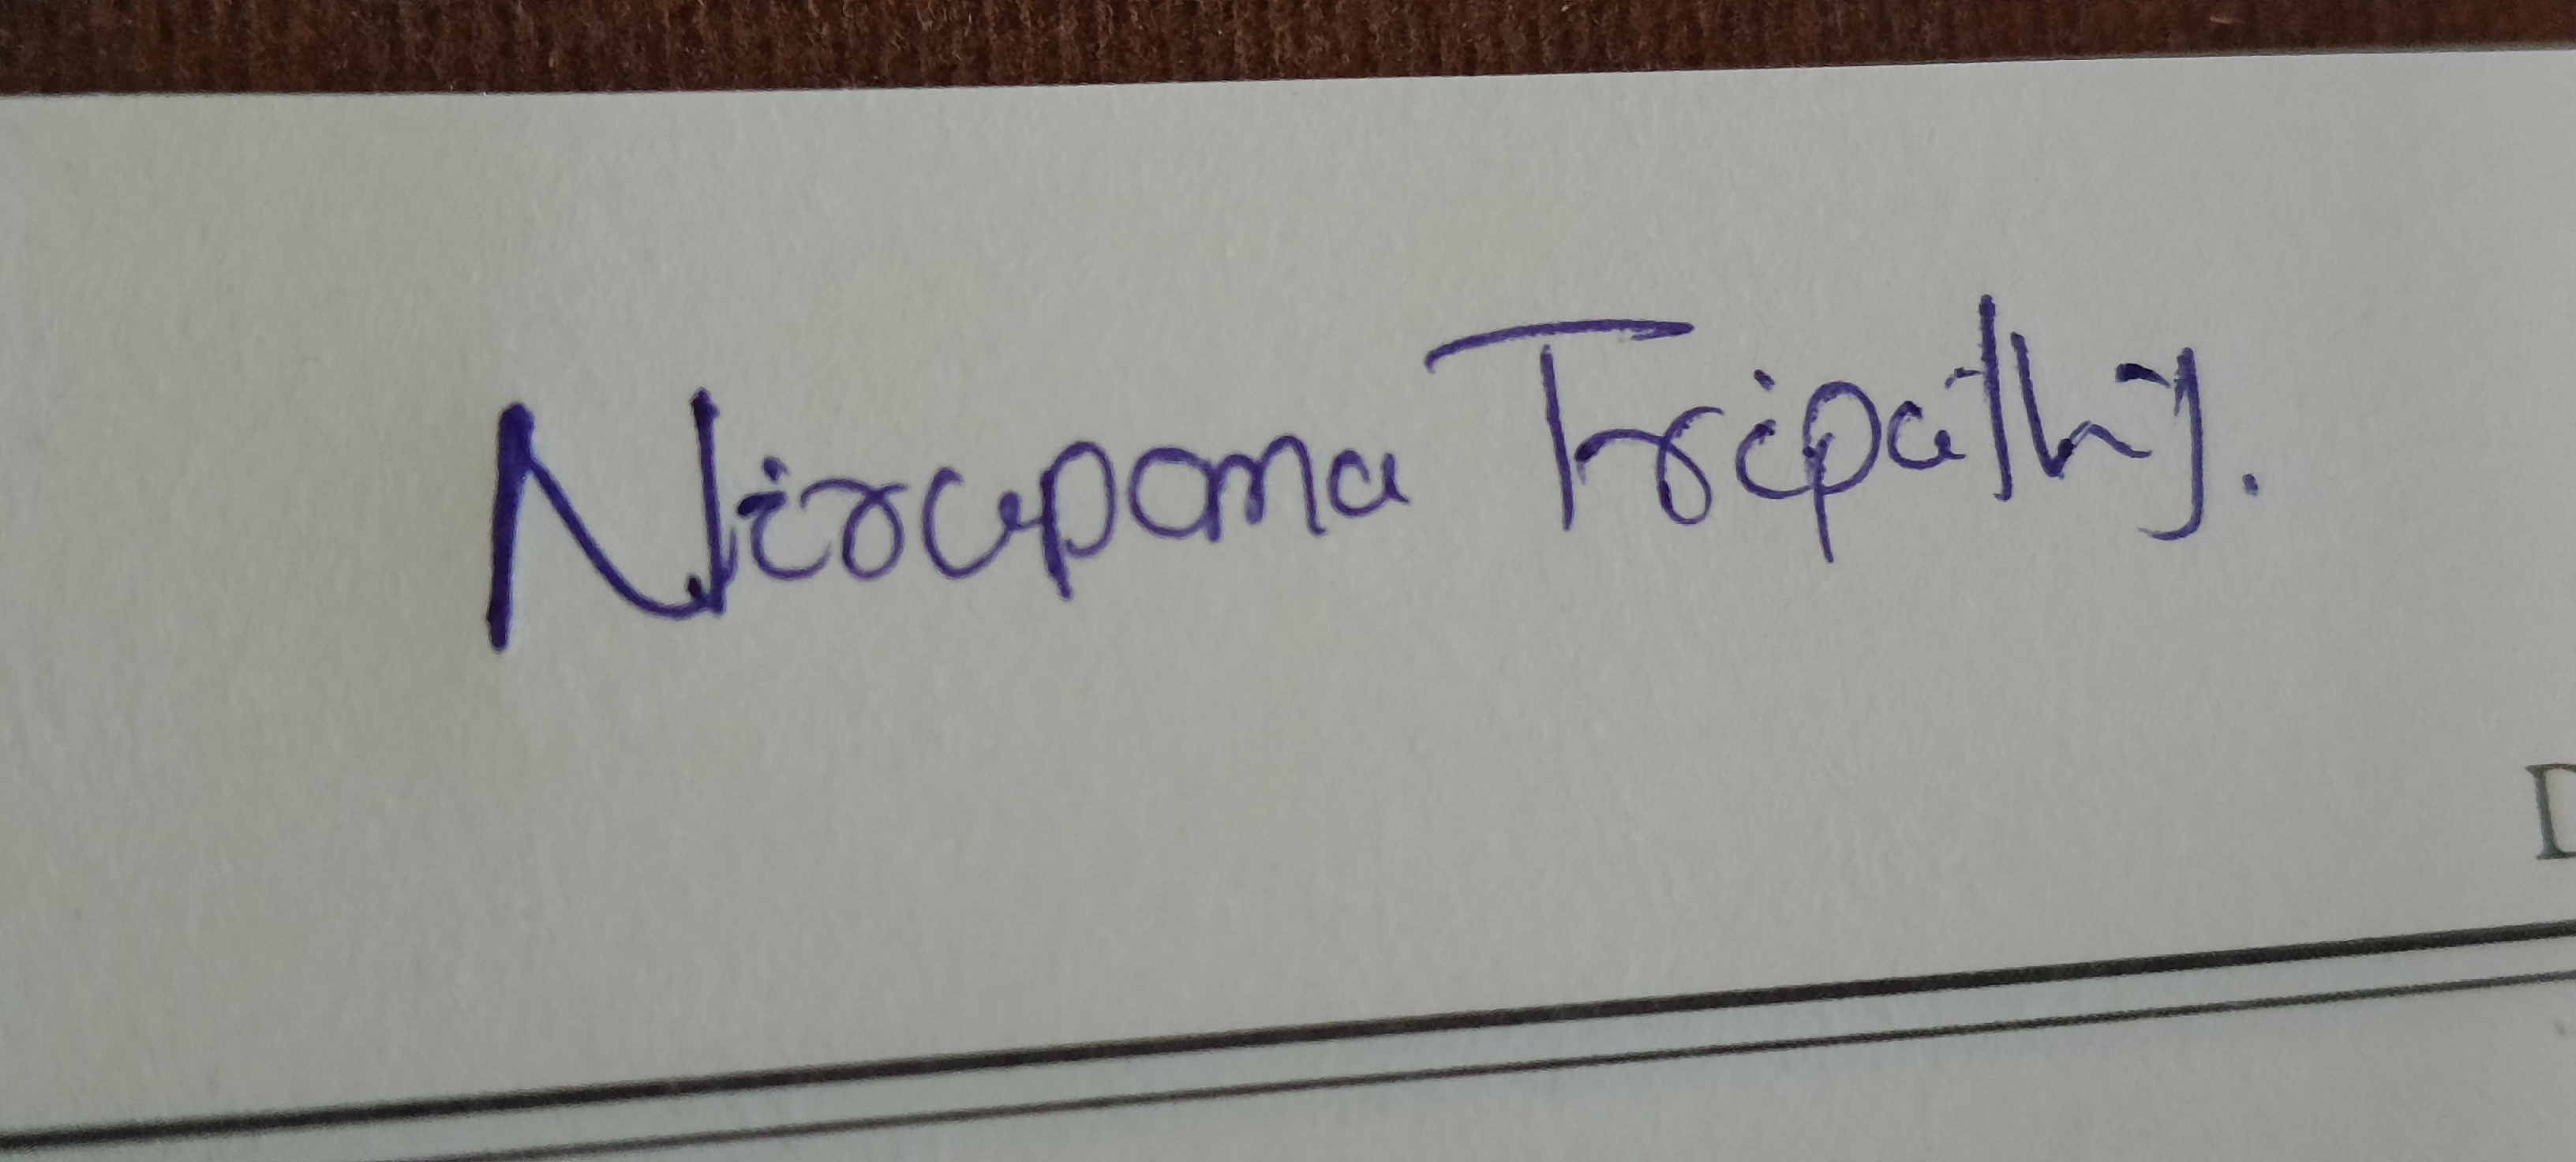 Nirupama Tripathy.
D